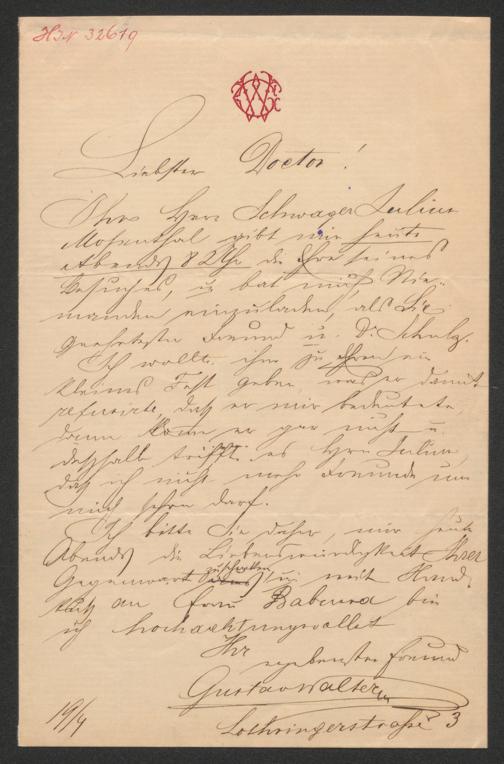 HIN 32619
Liebster Doctor!
Ihr Herr Schwager Julius
Mosenthal gibt mir heute
Abends 8 Uhr die Ehre seines
Besuches, u bat mich Nie-
manden einzuladen, als Sie
geehrtester Freund u. Dr. Schulz.
Ich wollte ihm zu Ehren ein
kleines Fest geben, was er damit
refusirte, daß er mir bedeutete
dann käme er gar nicht u
deßhalb trifft es Herrn Julius,
daß ich nicht mehr Freunde um
mich sehen darf.
Ich bitte Sie daher, mir heute
Abends die Liebenswürdigkeit Ihrer
Gegenwart zu schenken u mit Hand-
kuß an Frau Babette bin
ich hochachtungsvollst
Ihr
ergebenster Freund
Gustav Walter
19/4
Lothringerstraße 3